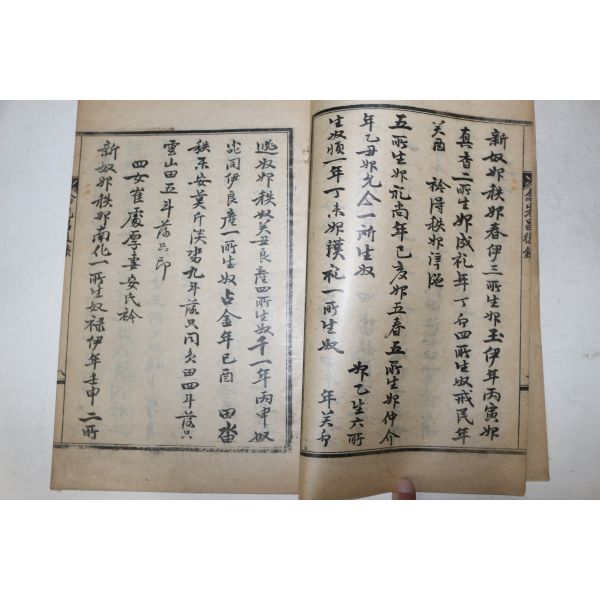 新奴婢秩婢春伊三所生婢玉伊年丙寅婢
真香二所生婢成礼年丁卯四所生奴戒民年
癸酉 衿得秩婢
五所生婢礼尚年己亥婢五春五所生婢仲介
年乙丑婢允今一所生奴 婢乙生六所
生奴順一年丁未婢漢礼一所生奴 年癸卯
逃奴婢秩奴癸丑良産四所生奴千一年丙申奴
同伊良産一所生奴占金年己酉 田畓
秩 安莫斤 畓九斗落只同 田四斗落只
雲山田五斗落只印
四女崔處厚妻安氏衿
新奴婢秩婢南化一所生奴祿伊年壬申二所